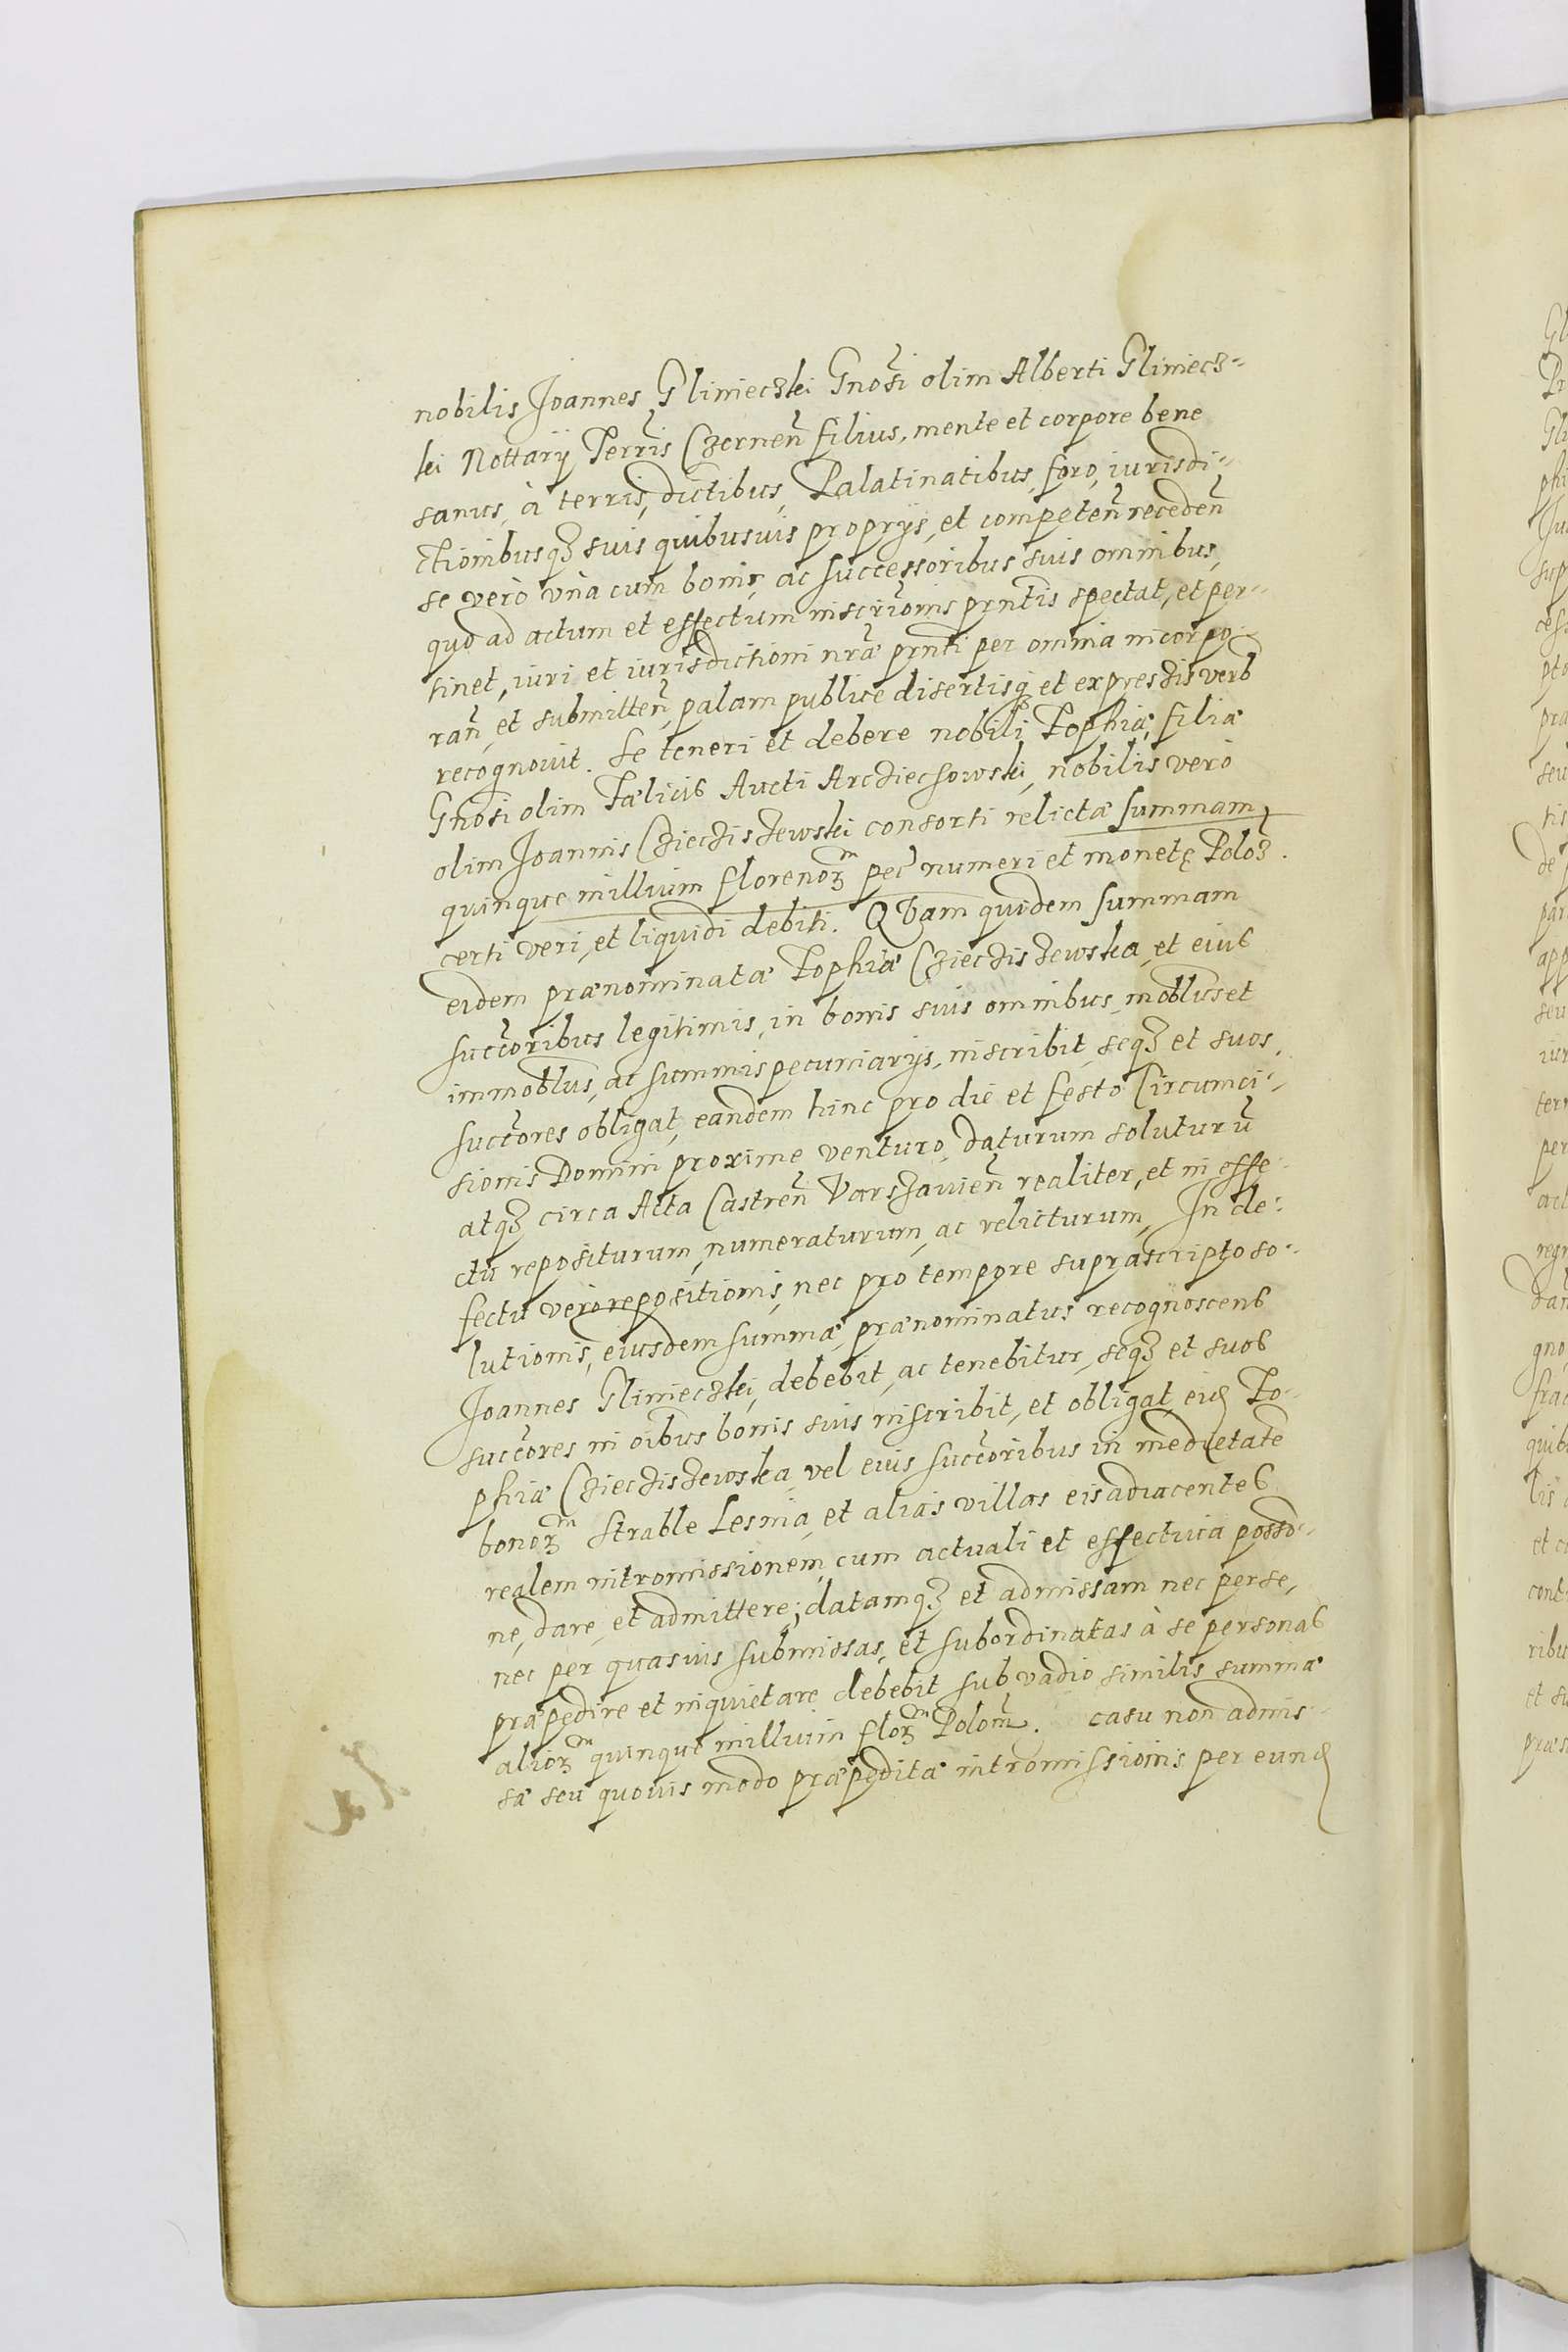 nobilis Joannes Glinieczki Gnosi olim Alberti Gliniecz-
ki Nottarÿ Terris Czernen̄ filius, mente et corpore bene
sanus, à terris, dictibus, Palatinatibus, foro, iurisdi-
ctionibusqȝ suis quibusuis proprÿs, et competen̄ receden̄
se verò vnà cum bonis, ac successoribus suis omnibus,
quo ad actum et effectum inscrīonis prntis spectat, et per-
tinet, iuri et iurisdictioni nrǣ prnti per omnia incorpo-
ran̄, et submitten̄, palam publice disertisqȝ et expressis verb
recognouit. Se teneri et debere nobili Zophiæ, filiæ
Gnosi olim Fælicis Aucti Arcziechowski, nobilis vero
olim Joannis Cziecziszewski consorti relictæ summam
quinque millium florenoꝝ pec̄ numeri et monetę Poloȝ.
certi veri, et liquidi debiti. QVam quidem summam
eidem prænominatæ Zophiæ Cziecziszewska, et eius
succ̄oribus legitimis, in bonis suis omnibus, moblibus et
immoblibus, ac summis pecuniarÿs, inscribit, seqȝ et suos
succ̄ores obligat, eandem hinc pro die et festo Circumci-
sionis Domini proxime venturo, daturum soluturū
atqȝ circa Acta Castren̄ Varszauien̄ realiter, et in effe-
ctu repositurum, numeraturum, ac relicturum, In de-
fectu vero repositionis, nec pro tempore suprascripto so-
lutionis, eiusdem summæ, prænominatus recognoscens
Joannes Glinieczki, debebit, ac tenebitur, seqȝ et suos
succ̄ores in oībus bonis suis inscribit, et obligat, eid Zo-
phiæ Cziecziszewska, vel eius succ̄oribus in medietatē
bonoꝝ Strable Lesnia, et alias villas eis adiacentes
realem intromissionem, cum actuali et effectiua posso-
ne, dare, et admittere; datamqȝ et admissam nec per se,
nec per quasuis submissas, et subordinatas à se personas
præpedire et inquietare debebit sub vadio similis summæ
alioꝝ quinque millium floꝝ Polon̄. casu non admis-
sæ seu quouis modo præpeditæ intromissionis per eund